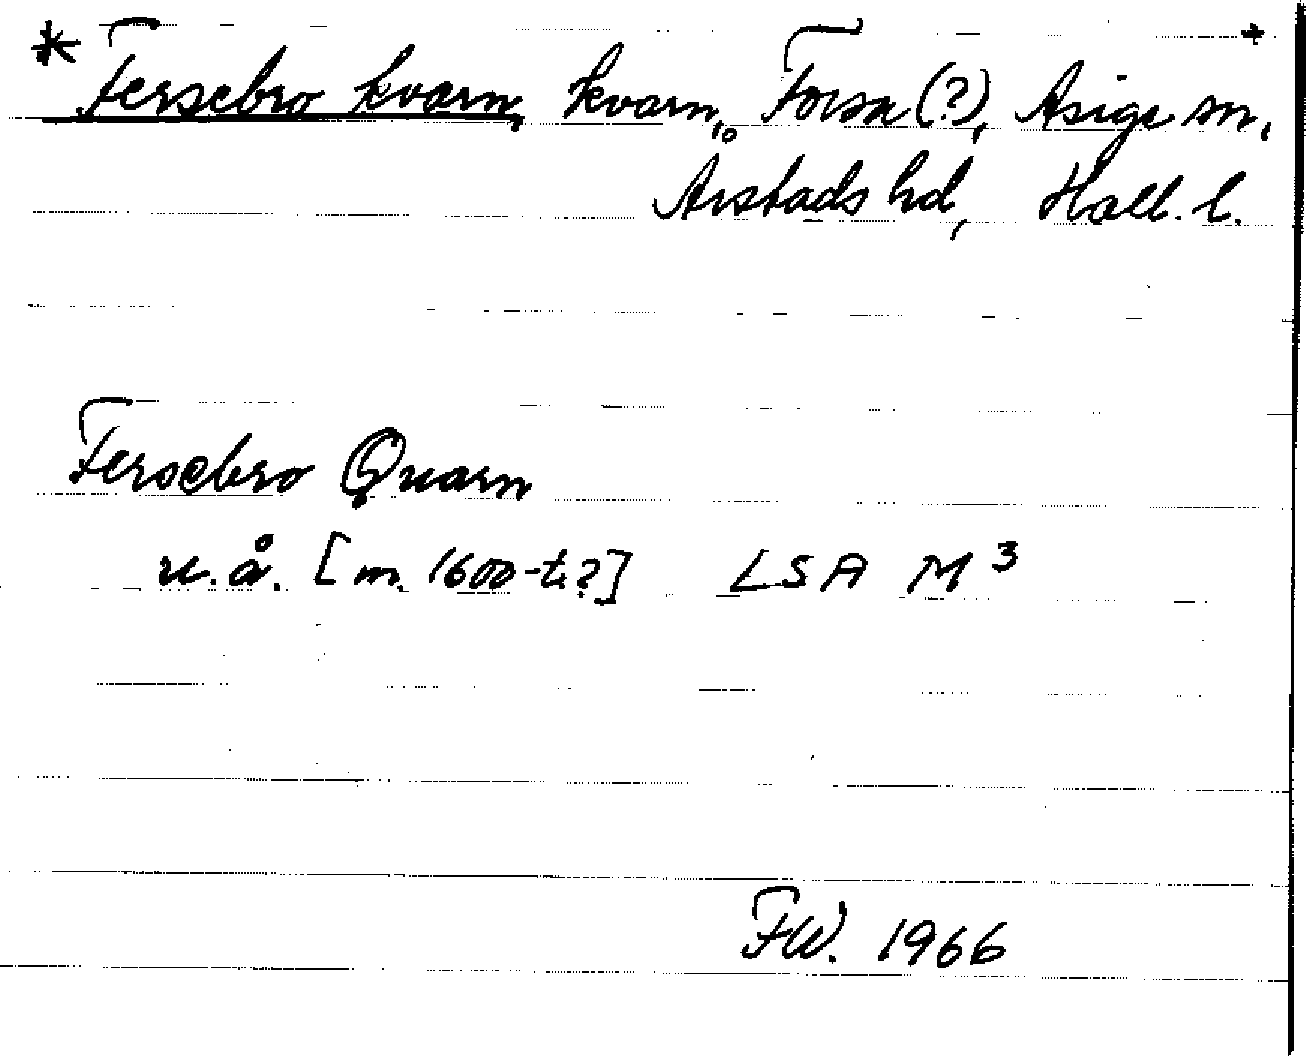 * Fersebro kvarn, kvarn, Forsa (?), Asige sn, +
Årstads hd, Hall. l.
Fersebro Quarn
u.å. [m. 1600-t.?] LSA M 3
FW. 1966